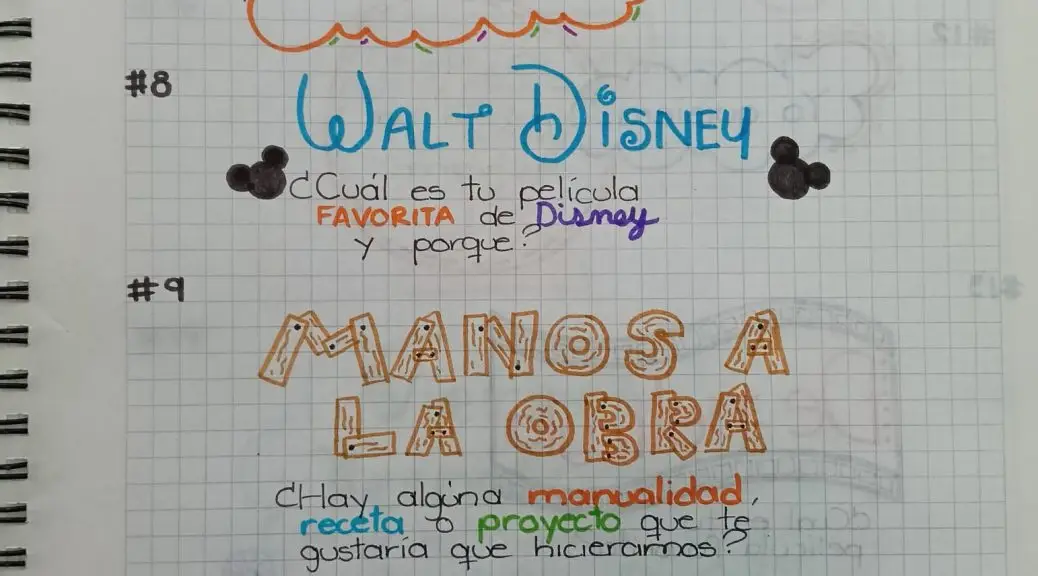 #8
WALT DISNEY
¿Cuál es tu película
FAVORITA de Disney
y porque?
#9
MANOS A
LA OBRA
¿Hay alguna manualidad,
receta o proyecto que te
gustaría que hicieramos?